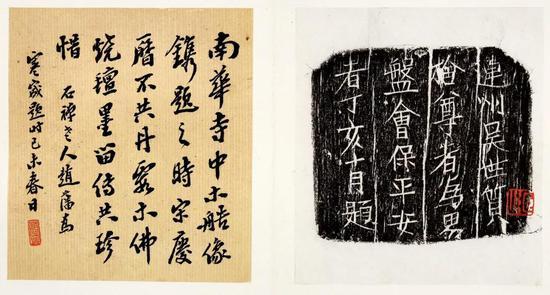 連州吳世質
捨尊者爲男
盤會保平安
者丁亥十月題
南華寺中木像
鐫題之時宋慶
曆不共丹霞木佛
燒氈墨留傳共珍
惜
石禪老人趙藩爲
題時己未春日